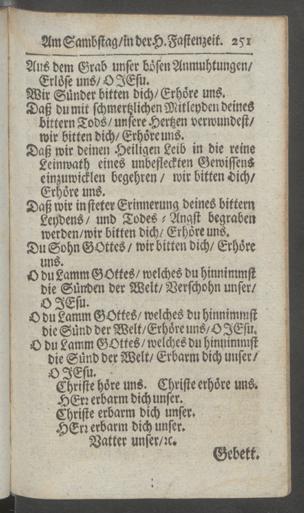 Am Sambstag/in der H. Fastenzeit. 251
Aus dem Grab unser bösen Anmuhtungen/
Erlöse uns/ O JEsu.
Wir Sünder bitten dich/ Erhöre uns.
Daß du mit schmertzlichen Mitleyden deines
bittern Tods/ unsere Hertzen verwundest/
wir bitten dich/ Erhöre uns.
Daß wir deinen Heiligen Leib in die reine
Leinwath eines unbefleckten Gewissens
einzuwicklen begehren / wir bitten dich/
Erhöre uns.
Daß wir in steter Erinnerung deines bittern
Leydens/ und Todes-Angst begraben
werden/ wir bitten dich/ Erhöre uns.
Du Sohn GOttes/ wir bitten dich/ Erhöre
uns.
O du Lamm GOttes/ welches du hinnimmst
die Sünden der Welt/ Verschohn unser/
O JEsu.
O du Lamm GOttes/ welches du hinnimmst
die Sünd der Welt/ Erhöre uns/ O JEsu.
O du Lamm GOttes/ welches du hinnimmst
die Sünd der Welt/ Erbarm dich unser/
O JEsu.
Christe höre uns. Christe erhöre uns.
HErr erbarm dich unser.
Christe erbarm dich unser.
HErr erbarm dich unser.
Vatter unser/ ꝛc.
Gebett.